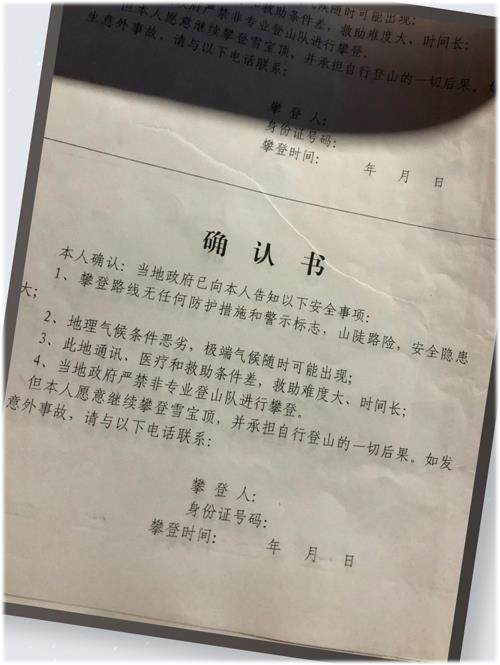 和救助条件差,救助难度大、时间长;
但本人愿意继续攀登雪宝顶,并承担自行登山的一切后果。如
生意外事故,请与以下电话联系:
攀 登 人:
身份证号码:
攀登时间: 年 月 日
确 认 书
本人确认:当地政府已向本人告知以下安全事项:
1、攀登路线无任何防护措施和警示标志,山陡路险,安全隐患
大;
2、地理气候条件恶劣,极端气候随时可能出现;
3、此地通讯、医疗和救助条件差,救助难度大、时间长;
4、当地政府严禁非专业登山队进行攀登。
但本人愿意继续攀登雪宝顶,并承担自行登山的一切后果。如发
意外事故,请与以下电话联系:
攀 登 人:
身份证号码:
攀登时间: 年 月 日